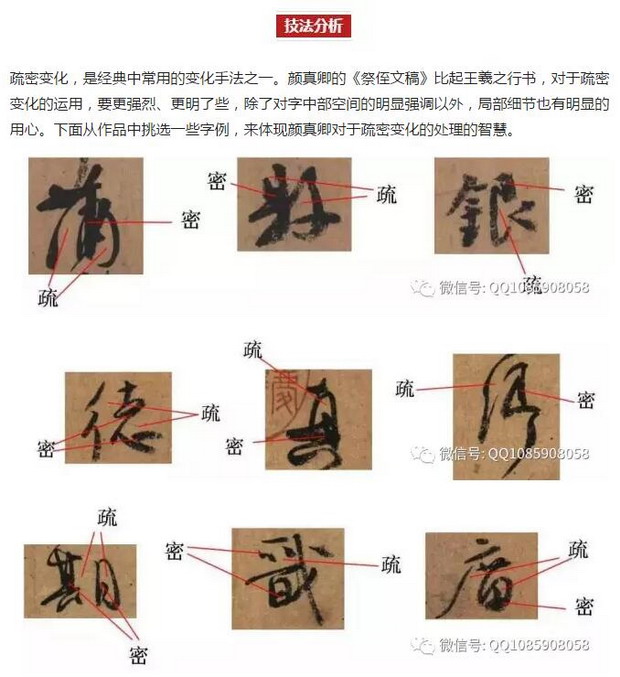 技法分析
疏密变化，是经典中常用的变化手法之一。颜真卿的《祭侄文稿》比起王羲之行书，对于疏密
变化的运用，要更强烈、更明了些，除了对字中部空间的明显强调以外，局部细节也有明显的
用心。下面从作品中挑选一些字例，来体现颜真卿对于疏密变化的处理的智慧。
蒲 密 疏
密 疏
銀 密 疏
微信号: QQ1085908058
德 疏 密
真 疏 密
疏 密
微信号: QQ1085908058
期 疏 密
戬 密 疏
廣 疏 密
微信号: QQ1085908058